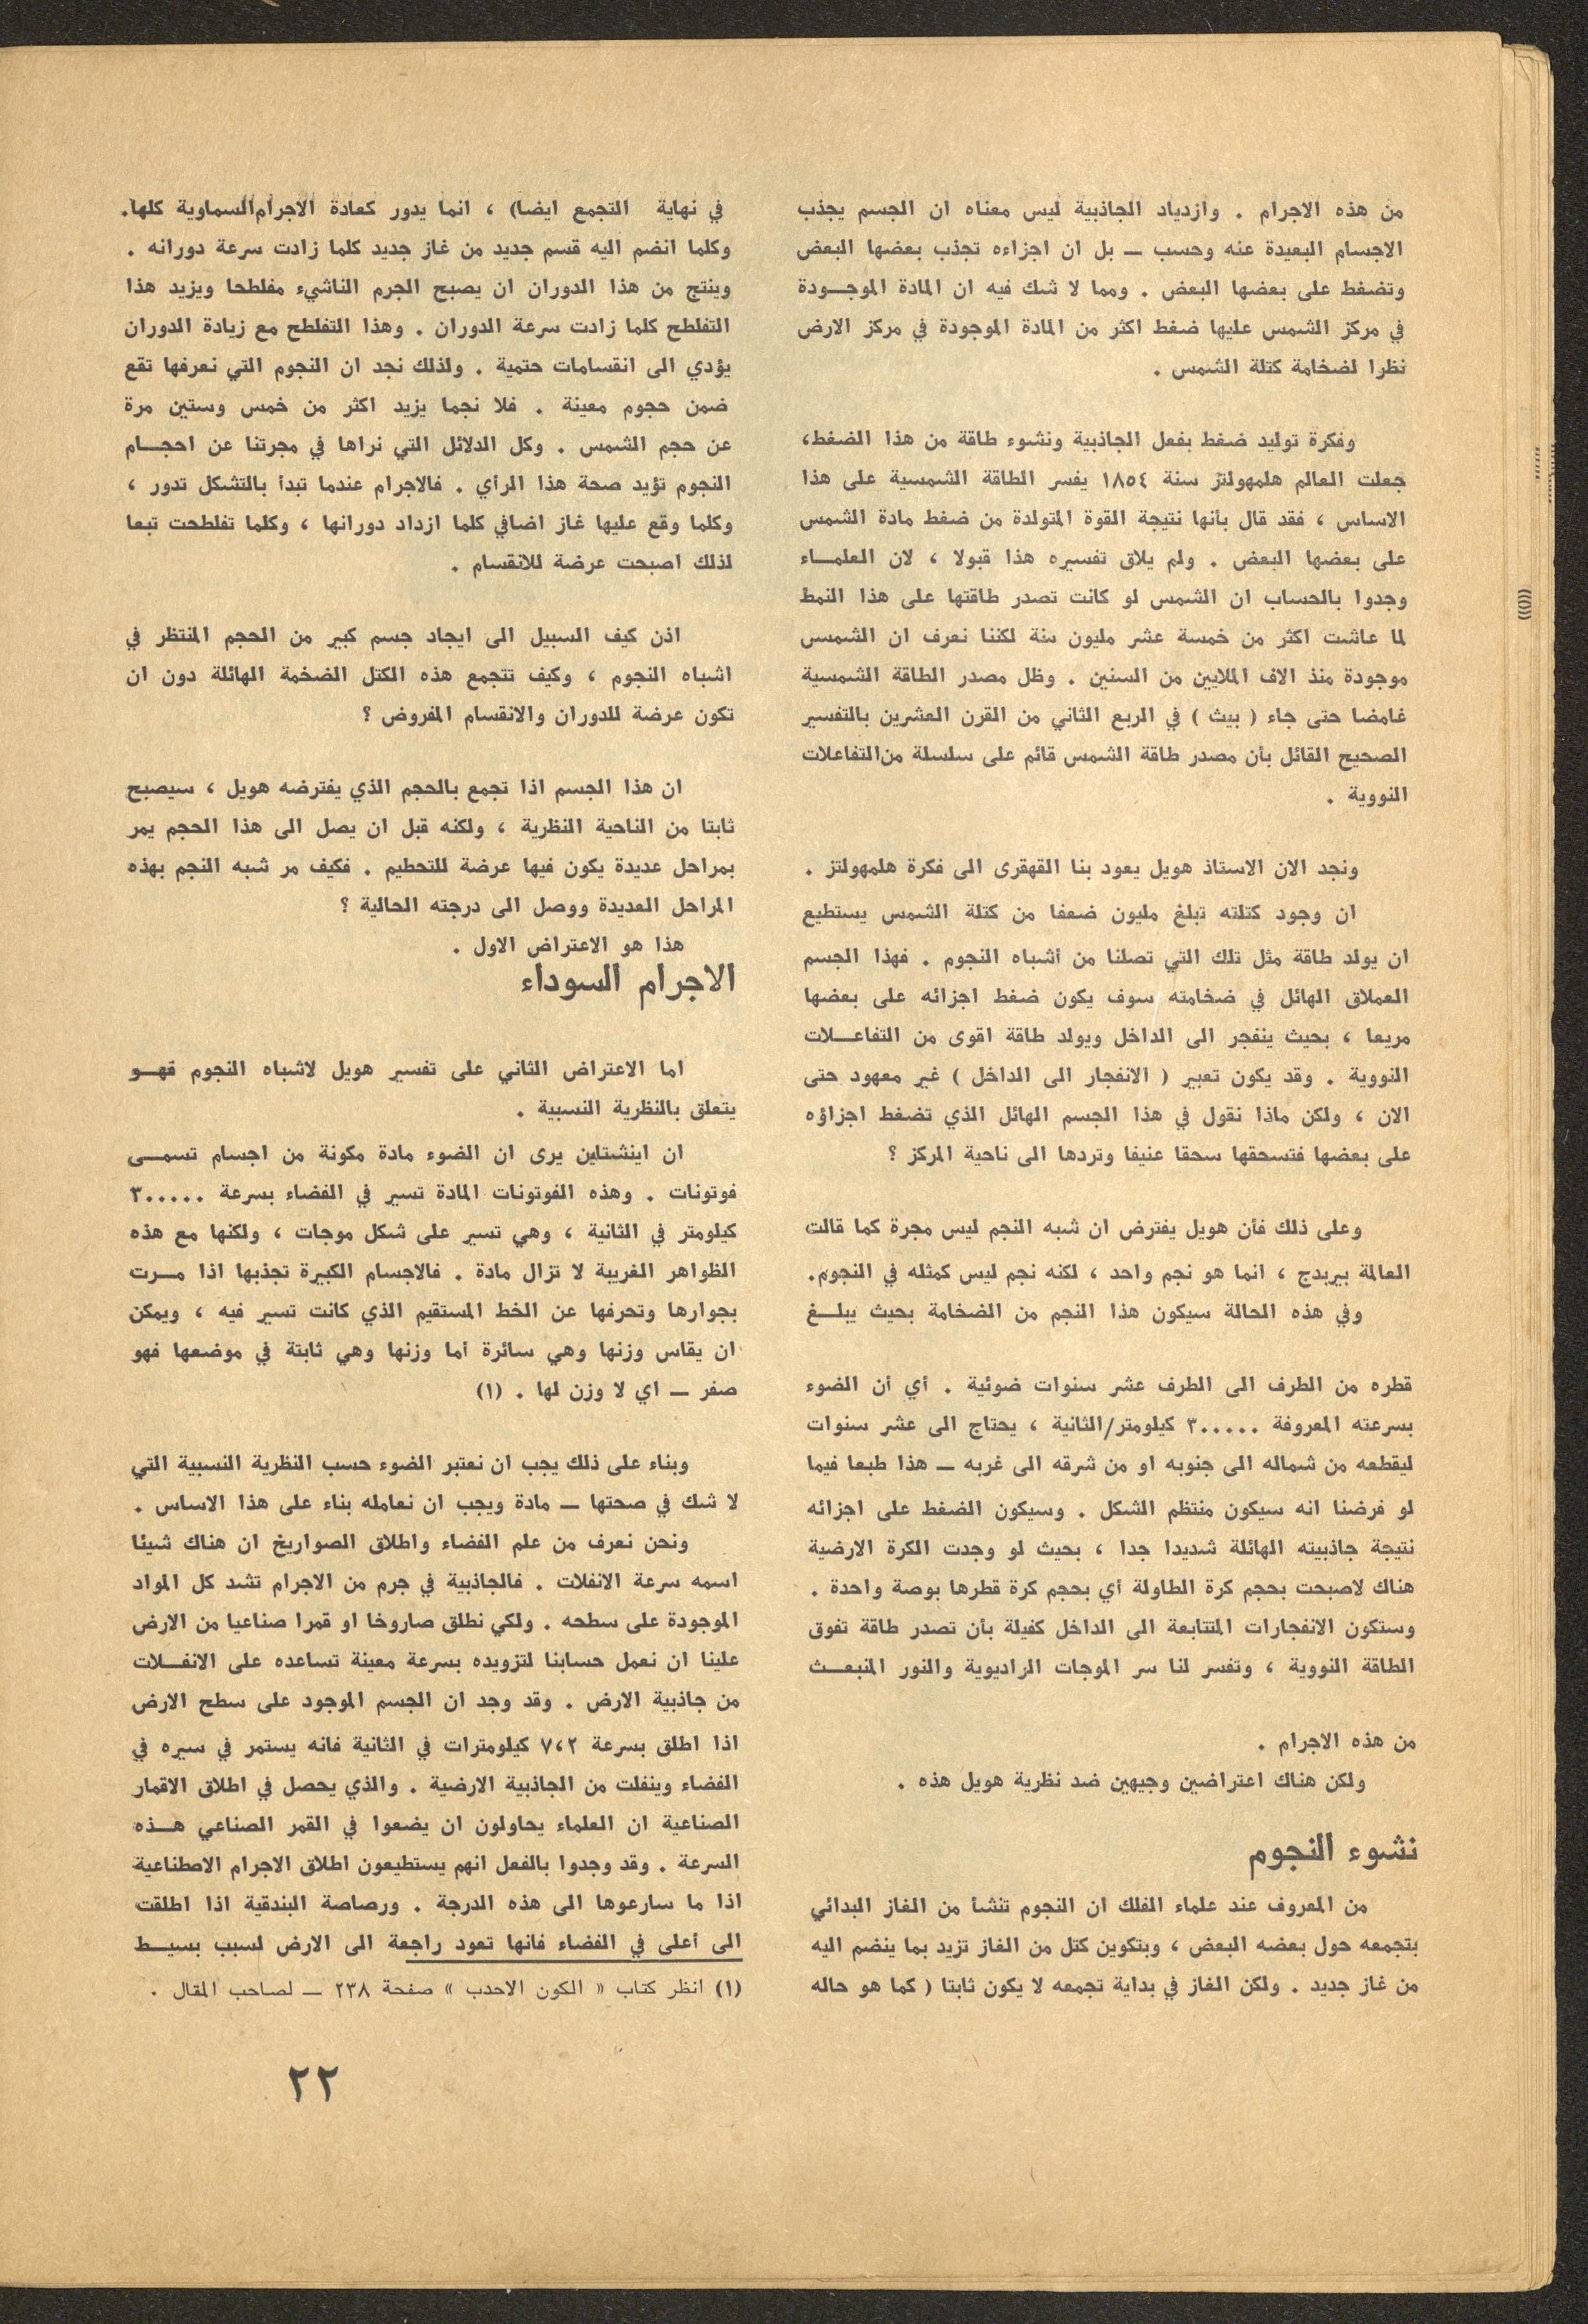 من هذه الاجرام . وازدياد الجاذبية ليس معناه ان الجسم يجذب
الاجسام البعيدة عنه وحسب ــ بل ان اجزاءه تجذب بعضها البعض
وتضغط على بعضها البعض . ومما لا شك فيه ان المادة الموجـــودة
في مركز الشمس عليها ضغط اكثر من المادة الموجودة في مركز الارض
نظرا لضخامة كتلة الشمس .
وفكرة توليد ضغط بفعل الجاذبية ونشوء طاقة من هذا الضغط،
جعلت العالم هلمهولتز سنة ١٨٥٤ يفسر الطاقة الشمسية على هذا
الاساس ، فقد قال بأنها نتيجة القوة المتولدة من ضغط مادة الشمس
على بعضها البعض . ولم يلاق تفسيره هذا قبولا ، لان العلمـــاء
وجدوا بالحساب ان الشمس لو كانت تصدر طاقتها على هذا النمط
لما عاشت اكثر من خمسة عشر مليون سنة لكننا نعرف ان الشمس
موجودة منذ الاف الملايين من السنين . وظل مصدر الطاقة الشمسية
غامضا حتى جاء ( بيث ) في الربع الثاني من القرن العشرين بالتفسير
الصحيح القائل بأن مصدر طاقة الشمس قائم على سلسلة من التفاعلات
النووية .
ونجد الان الاستاذ هويل يعود بنا القهقرى الى فكرة هلمهولتز .
ان وجود كتلته تبلغ مليون ضعفا من كتلة الشمس يستطيع
ان يولد طاقة مثل تلك التي تصلنا من أشباه النجوم . فهذا الجسم
العملاق الهائل في ضخامته سوف يكون ضغط اجزائه على بعضها
مريعا ، بحيث ينفجر الى الداخل ويولد طاقة اقوى من التفاعـــلات
النووية . وقد يكون تعبير ( الانفجار الى الداخل ) غير معهود حتى
الان ، ولكن ماذا نقول في هذا الجسم الهائل الذي تضغط اجزاؤه
على بعضها فتسحقها سحقا عنيفا وتردها الى ناحية المركز ؟
وعلى ذلك فأن هويل يفترض ان شبه النجم ليس مجرة كما قالت
العالمة بيربدج ، انما هو نجم واحد ، لكنه نجم ليس كمثله في النجوم.
وفي هذه الحالة سيكون هذا النجم من الضخامة بحيث يبلـــغ
قطره من الطرف الى الطرف عشر سنوات ضوئية . أي أن الضوء
بسرعته المعروفة ٣٠٠٠٠٠ كيلومتر/الثانية ، يحتاج الى عشر سنوات
ليقطعه من شماله الى جنوبه او من شرقه الى غربه ــ هذا طبعا فيما
لو فرضنا انه سيكون منتظم الشكل . وسيكون الضغط على اجزائه
نتيجة جاذبيته الهائلة شديدا جدا ، بحيث لو وجدت الكرة الارضية
هناك لاصبحت بحجم كرة الطاولة أي بحجم كرة قطرها بوصة واحدة .
وستكون الانفجارات المتتابعة الى الداخل كفيلة بأن تصدر طاقة تفوق
الطاقة النووية ، وتفسر لنا سر الموجات الراديوية والنور المنبعـــث
من هذه الاجرام .
ولكن هناك اعتراضين وجيهين ضد نظرية هويل هذه .
نشوء النجوم
من المعروف عند علماء الفلك ان النجوم تنشأ من الغاز البدائي
بتجمعه حول بعضه البعض ، وبتكوين كتل من الغاز تزيد بما ينضم اليه
من غاز جديد . ولكن الغاز في بداية تجمعه لا يكون ثابتا ( كما هو حاله
في نهاية التجمع ايضا) ، انما يدور كعادة الاجرام السماوية كلها.
وكلما انضم اليه قسم جديد من غاز جديد كلما زادت سرعة دورانه .
وينتج من هذا الدوران ان يصبح الجرم الناشيء مفلطحا ويزيد هذا
التفلطح كلما زادت سرعة الدوران . وهذا التفلطح مع زيادة الدوران
يؤدي الى انقسامات حتمية . ولذلك نجد ان النجوم التي نعرفها تقع
ضمن حجوم معينة . فلا نجما يزيد اكثر من خمس وستين مرة
عن حجم الشمس . وكل الدلائل التي نراها في مجرتنا عن احجـــام
النجوم تؤيد صحة هذا الرأي . فالاجرام عندما تبدأ بالتشكل تدور ،
وكلما وقع عليها غاز اضافي كلما ازداد دورانها ، وكلما تفلطحت تبعا
لذلك اصبحت عرضة للانقسام .
اذن كيف السبيل الى ايجاد جسم كبير من الحجم المنتظر في
اشباه النجوم ، وكيف تتجمع هذه الكتل الضخمة الهائلة دون ان
تكون عرضة للدوران والانقسام المفروض ؟
ان هذا الجسم اذا تجمع بالحجم الذي يفترضه هويل ، سيصبح
ثابتا من الناحية النظرية ، ولكنه قبل ان يصل الى هذا الحجم يمر
بمراحل عديدة يكون فيها عرضة للتحطيم . فكيف مر شبه النجم بهذه
المراحل العديدة ووصل الى درجته الحالية ؟
هذا هو الاعتراض الاول .
الاجرام السوداء
اما الاعتراض الثاني على تفسير هويل لاشباه النجوم فهـــو
يتعلق بالنظرية النسبية .
ان اينشتاين يرى ان الضوء مادة مكونة من اجسام تسمـــى
فوتونات . وهذه الفوتونات المادة تسير في الفضاء بسرعة ٣٠٠٠٠٠
كيلومتر في الثانية ، وهي تسير على شكل موجات ، ولكنها مع هذه
الظواهر الغريبة لا تزال مادة . فالاجسام الكبيرة تجذبها اذا مـــرت
بجوارها وتحرفها عن الخط المستقيم الذي كانت تسير فيه ، ويمكن
ان يقاس وزنها وهي سائرة أما وزنها وهي ثابتة في موضعها فهو
صفر ــ اي لا وزن لها . (١)
وبناء على ذلك يجب ان نعتبر الضوء حسب النظرية النسبية التي
لا شك في صحتها ــ مادة ويجب ان نعامله بناء على هذا الاساس .
ونحن نعرف من علم الفضاء واطلاق الصواريخ ان هناك شيئا
اسمه سرعة الانفلات . فالجاذبية في جرم من الاجرام تشد كل المواد
الموجودة على سطحه . ولكي نطلق صاروخا او قمرا صناعيا من الارض
علينا ان نعمل حسابنا لتزويده بسرعة معينة تساعده على الانفـــلات
من جاذبية الارض . وقد وجد ان الجسم الموجود على سطح الارض
اذا اطلق بسرعة ٧،٢ كيلومترات في الثانية فانه يستمر في سيره في
الفضاء وينفلت من الجاذبية الارضية . والذي يحصل في اطلاق الاقمار
الصناعية ان العلماء يحاولون ان يضعوا في القمر الصناعي هـــذه
السرعة . وقد وجدوا بالفعل انهم يستطيعون اطلاق الاجرام الاصطناعية
اذا ما سارعوها الى هذه الدرجة . ورصاصة البندقية اذا اطلقت
الى أعلى في الفضاء فانها تعود راجعة الى الارض لسبب بسيـــط
(١) انظر كتاب « الكون الاحدب » صفحة ٢٣٨ ــ لصاحب المقال .
٢٢